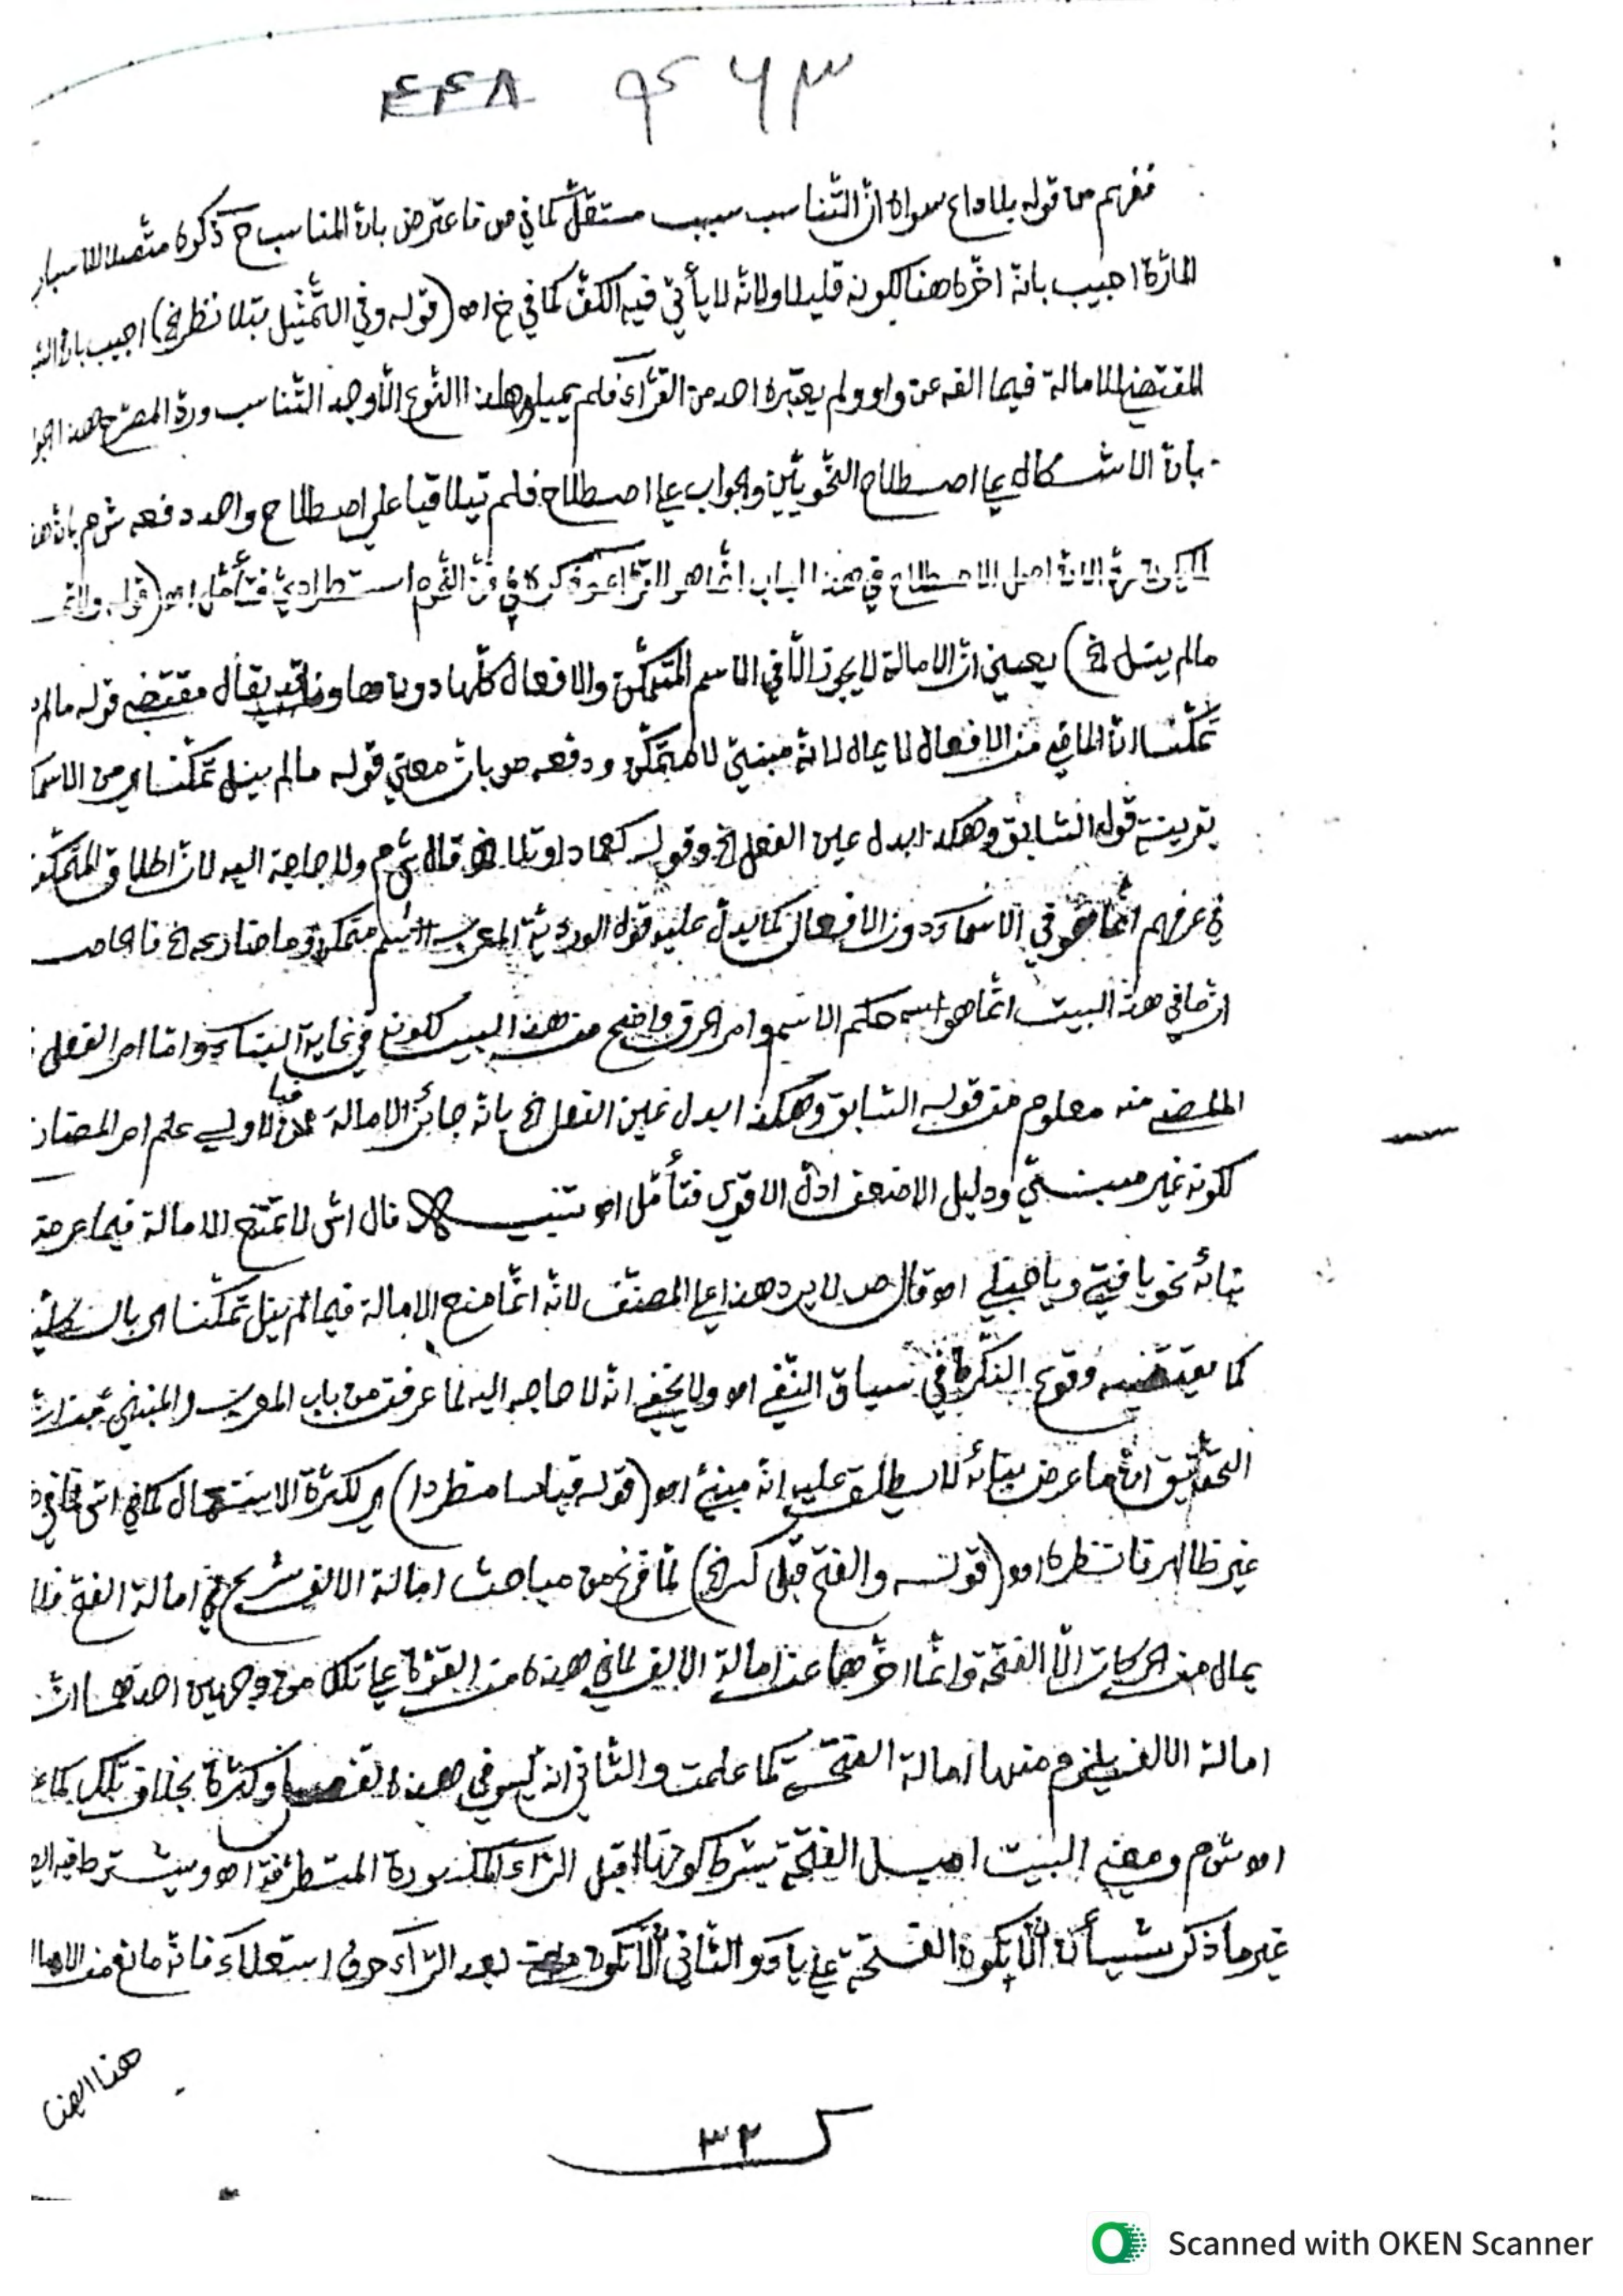 ٤٤٨ ٩٤٦٣
ففهم من قوله بلا داع سواه انّ التّناسب سبب مستقلّ كما في ص فاعترض بانّ المناسب ح ذكره متّصلا بالاسباب
المارّة اجيب بانّه اخّره هنا لكونه قليلا ولانّه لا يأتي فيه الكفّ كما في خ اه (قوله وفي التّمثيل بتلا نظر الخ) اجيب بانّ
المقتضي للامالة فيما الفه عن واو ولم يعتبره احد من القرّآء فلم يميلوا هذا النّوع الّا وجد التّناسب وردّه المصرّح هذا
بانّ الاشكال على اصطلاح النّحويّين والجواب على اصطلاح فلم يتلاقيا على اصطلاح واحد دفعه ش م بانّ
اصل الاصطلاح في هذا الباب انّما هو للقرّاء وذكره في فنّ النّحو استطراديّ فتأمّل اه (قوله ولا تمل
مالم ينل الخ) يعني انّ الامالة لا يجوز الّا في الاسم المتمكّن والافعال كلّها دون ها ونا قد يقال مقتضى قوله مالم
تمكّنا انّ الماضي من الافعال لا يمال لانّه مبنيّ لا متمكّن ودفعه ص بان معنى قوله مالم ينل تمكّنا اي من الاسما
بقرينة قوله السّابق وهكذا بدل عين الفعل الخ وقوله كعمادا وتلا قال ش م ولا حاجة اليه لانّ اطلاق المتمكّن
في عرفهم انّما هو في الاسمآء دون الافعال كما يدلّ عليه قول الورديّة المعرب اسم متمكّن وما ضارعه الخ فالحاصل
انّ ما في هذا البيت انّما هو حكم الاسم وامر الحرف واضح من هذا البيت لكونه في غاية البنآء وامّا امر الفعل
الماضي منه معلوم من قوله السّابق وهكذا بدل عين الفعل الخ بانّه جائز الامالة فبالاولى علم امر المضارع
لكونه غير مبنيّ ودليل الاضعف ادلّ الاقوى فتأمّل اه تنبيه قال اش لا تمتنع الامالة فيما عرض
بنائه نحو يا فتى ويا حبلى اه قال ص لا يرد هذا على المصنّف لانّه انّما منع الامالة فيما لم ينل تمكّنا اي بالكليّة
كما يقتضيه وقوع النكّرة في سياق النّفي اه ولا يخفى انّه لا حاجه اليه لما عرفت من باب المعرب والمبني
التّحقيق انّ ما عرض بنائه لا يطلق عليه انّه مبنيّ اه (قوله قياسا مطّردا) اي لكثرة الاستعمال كما في اش
غير ظاهر فانظره اه (قوله والفتح قبل كسر الخ) لمّا فرغ من مباحث امالة الالف شرع في امالة الفتح فلا
يمال من الحركات الّا الفتحة وانّما اخّرها عن امالة الالف لما في هذه من القوّة على تلك من وجهين احدهما انّ
امالة الالف يلزم منها امالة الفتحة كما علمت والثّاني انّه ليس في هذه تفصيل وكثرة بخلاف تلك كما
اه ش م ومعنى البيت امل الفتحة بشرط كونها قبل الرّآء المكسورة المتطرّفة اه ويشترط فيه
غير ما ذكر شيأن الّا يكون الفتحة على يآء والثّاني الّا يكون بعد الرّآء حرف استعلآء فانّه مانع من الاما
هنا ايضا
ك ٣٢
Scanned with OKEN Scanner